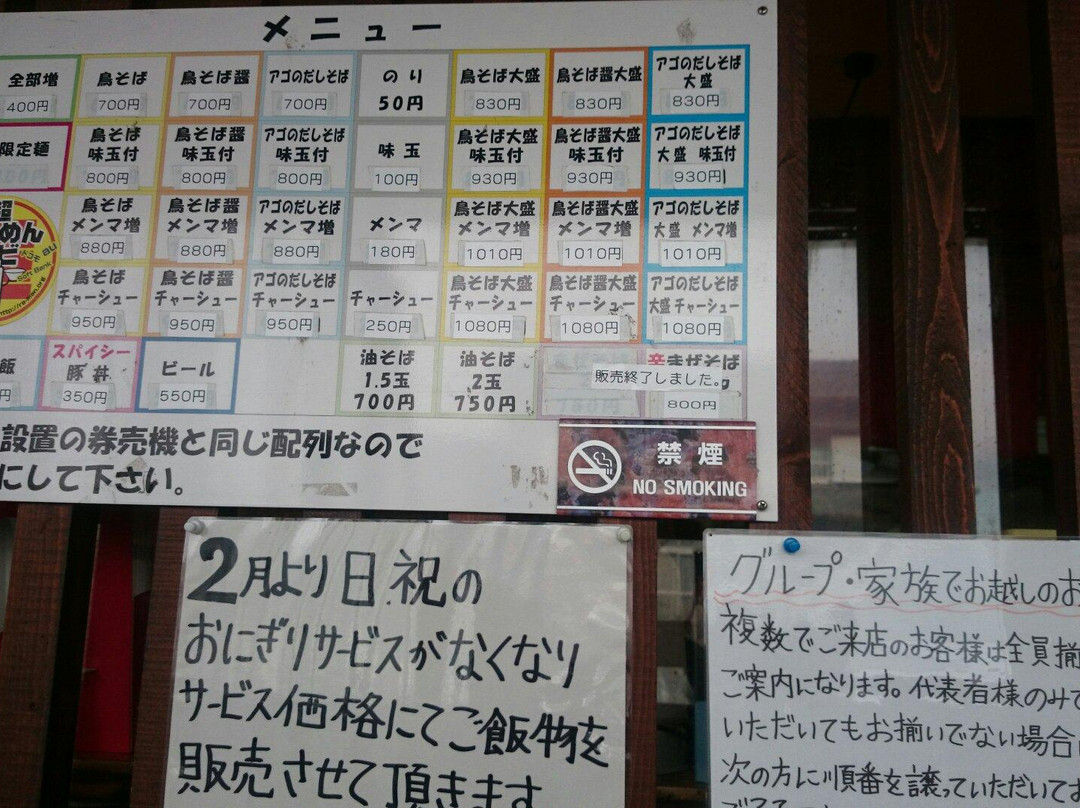 メニュー
全部増 鳥そば 鳥そば醤 アゴのだしそば のり 鳥そば大盛 鳥そば醤大盛 アゴのだしそば
大盛
400円 700円 700円 700円 50円 830円 830円 830円
限定麺 鳥そば 鳥そば醤 アゴのだしそば 味玉 鳥そば大盛 鳥そば醤大盛 アゴのだしそば
味玉付 味玉付 味玉付 味玉付 味玉付 大盛 味玉付
800円 800円 800円 100円 930円 930円 930円
鳥そば 鳥そば醤 アゴのだしそば メンマ 鳥そば大盛 鳥そば醤大盛 アゴのだしそば
メンマ増 メンマ増 メンマ増 メンマ増 メンマ増 大盛 メンマ増
880円 880円 880円 180円 1010円 1010円 1010円
超
Soft Bank
鳥そば 鳥そば醤 アゴのだしそば チャーシュー 鳥そば大盛 鳥そば醤大盛 アゴのだしそば
チャーシュー チャーシュー チャーシュー チャーシュー チャーシュー 大盛 チャーシュー
950円 950円 950円 250円 1080円 1080円 1080円
飯 スパイシー ビール 油そば 油そば 辛まぜそば
豚丼 1.5玉 2玉 販売終了しました。g
円 350円 550円 700円 750円 800円
設置の券売機と同じ配列なので
にして下さい。
禁煙
NO SMOKING
2月より日、祝の
おにぎりサービスがなくなり
サービス価格にてご飯物を
販売させて頂きます
グループ・家族でお越しのお
複数でご来店のお客様は全員揃
ご案内になります。代表者様のみで
いただいてもお揃いでない場合
次の方に順番を譲っていただいてお